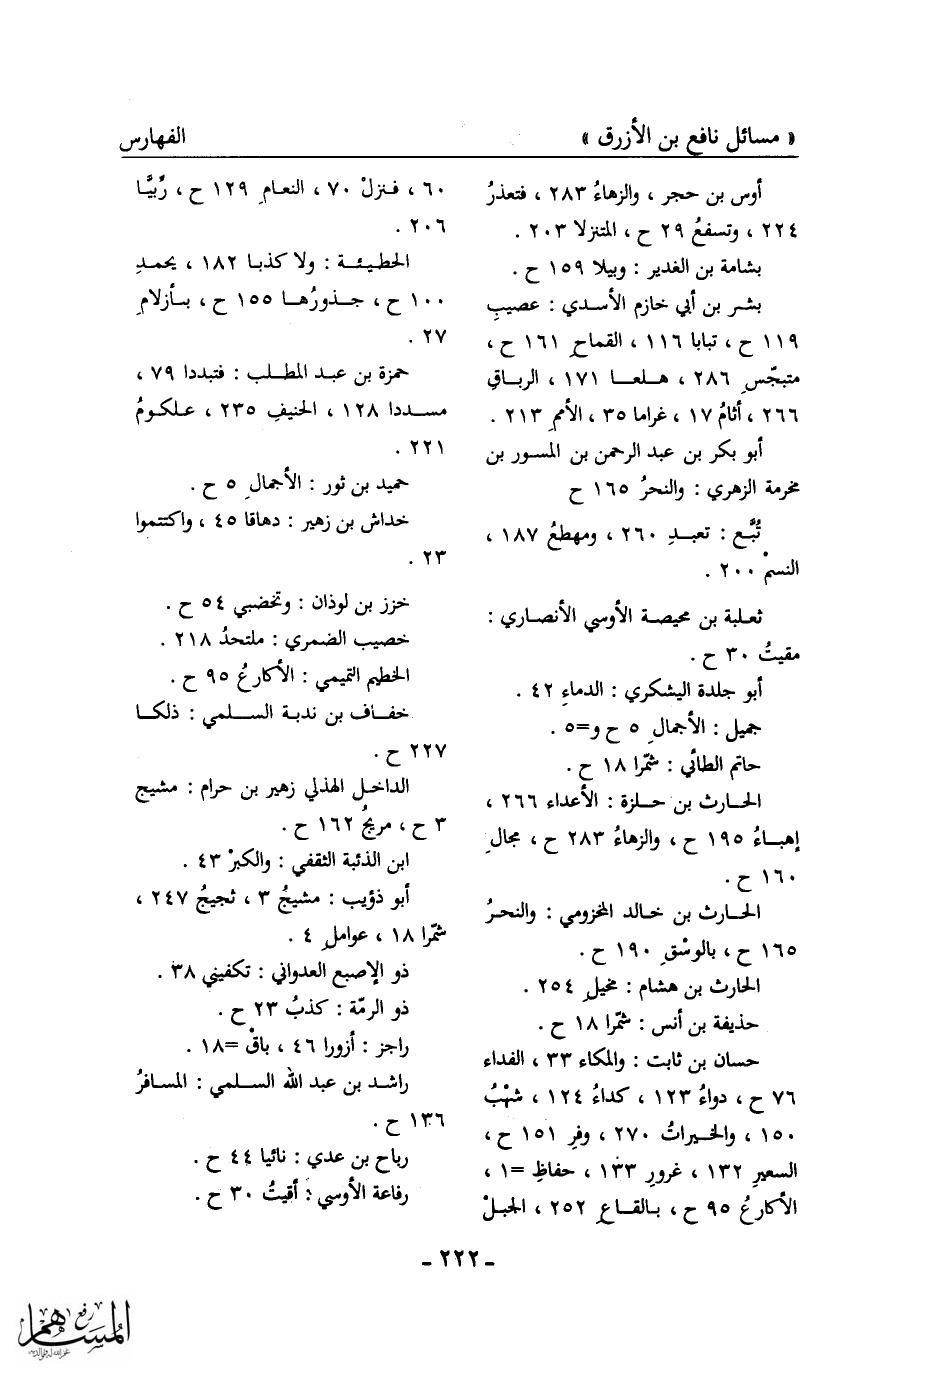 « مسائل نافع بن الأزرق » الفهارس
أوس بن حجر ، والزهاءُ ٢٨٣ ، فتعذرُ
٢٢٤ ، وتسفعُ ٢٩ ح ، المتنزلا ٢٠٣ .
بشامة بن الغدير : وبيلا ١٥٩ ح .
بشر بن أبي خازم الأسدي : عصيبِ
١١٩ ح ، تبابا ١١٦ ، القماحِ ١٦١ ح ،
متبجّسِ ٢٨٦ ، هلعا ١٧١ ، الرباقِ
٢٦٦ ، أثامُ ١٧ ، غراما ٣٥ ، الأممِ ٢١٣ .
أبو بكر بن عبد الرحمن بن المسور بن
مخرمة الزهري : والنحرُ ١٦٥ ح
تُبَّع : تعبدِ ٢٦٠ ، ومهطعُ ١٨٧ ،
النسمْ ٢٠٠ .
ثعلبة بن محيصة الأوسي الأنصاري :
مقيتُ ٣٠ ح .
أبو جلدة اليشكري : الدماءِ ٤٢ .
جميل : الأجمالِ ٥ ح و=٥ .
حاتم الطائي : شمّرا ١٨ ح .
الحارث بن حلزة : الأعداء ٢٦٦ ،
إهباءُ ١٩٥ ح ، والزهاءُ ٢٨٣ ح ، مجالِ
١٦٠ ح .
الحارث بن خالد المخزومي : والنحرُ
١٦٥ ح ، بالوسْقِ ١٩٠ ح .
الحارث بن هشام : مخيلِ ٢٥٤ .
حذيفة بن أنس : شمّرا ١٨ ح .
حسان بن ثابت : والمكاء ٣٣ ، الفداء
٧٦ ح ، دواءُ ١٢٣ ، كداءُ ١٢٤ ، شهْبُ
١٥٠ ، والخيراتُ ٢٧٠ ، وفرِ ١٥١ ح ،
السعيرِ ١٣٢ ، غرورِ ١٣٣ ، حفاظِ =١ ،
الأكارعُ ٩٥ ح ، بالقاعِ ٢٥٢ ، الجبلْ
٦٠ ، فنزلْ ٧٠ ، النعامِ ١٢٩ ح ، ربِّيَّا
٢٠٦ .
الحطيئة : ولا كذبا ١٨٢ ، يحمدِ
١٠٠ ح ، جذورُها ١٥٥ ح ، بأزلامِ
٢٧ .
حمزة بن عبد المطلب : فتبددا ٧٩ ،
مسددا ١٢٨ ، الحنيفِ ٢٣٥ ، علكومُ
٢٢١ .
حميد بن ثور : الأجمالِ ٥ ح .
خداش بن زهير : دهاقا ٤٥ ، واكتتموا
٢٣ .
خزز بن لوذان : وتخضبي ٥٤ ح .
خصيب الضمري : ملتحدُ ٢١٨ .
الخطيم التميمي : الأكارعُ ٩٥ ح .
خفاف بن ندبة السلمي : ذلكا
٢٢٧ ح .
الداخل الهذلي زهير بن حرام : مشيج
٣ ح ، مريجُ ١٦٢ ح .
ابن الذئبة الثقفي : والكبرْ ٤٣ .
أبو ذؤيب : مشيجُ ٣ ، ثجيجُ ٢٤٧ ،
شمّرا ١٨ ، عواملِ ٤ .
ذو الإصبع العدواني : تكفيني ٣٨ .
ذو الرمّة : كذبُ ٢٣ ح .
راجز : أزورا ٤٦ ، باقْ =١٨ .
راشد بن عبد الله السلمي : المسافرُ
١٣٦ ح .
رباح بن عدي : نائيا ٤٤ ح .
رفاعة الأوسي : أقيتُ ٣٠ ح .
- ٢٢٢ -
رفع
المساهم